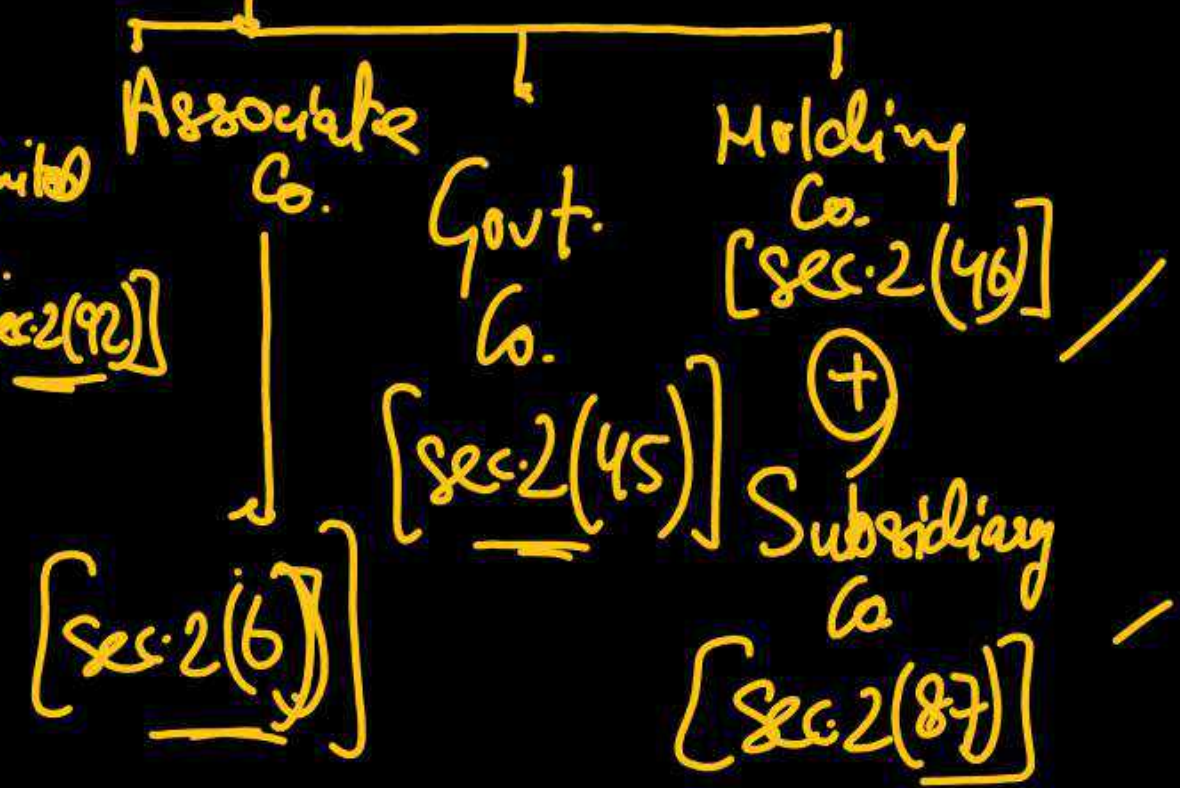 Associate
Co.
[sec.2(6)]
Govt.
Co.
[sec.2(45)]
Holding
Co.
[sec.2(46)]
+
Subsidiary
Co
[sec.2(87)]
ec.2(92)]